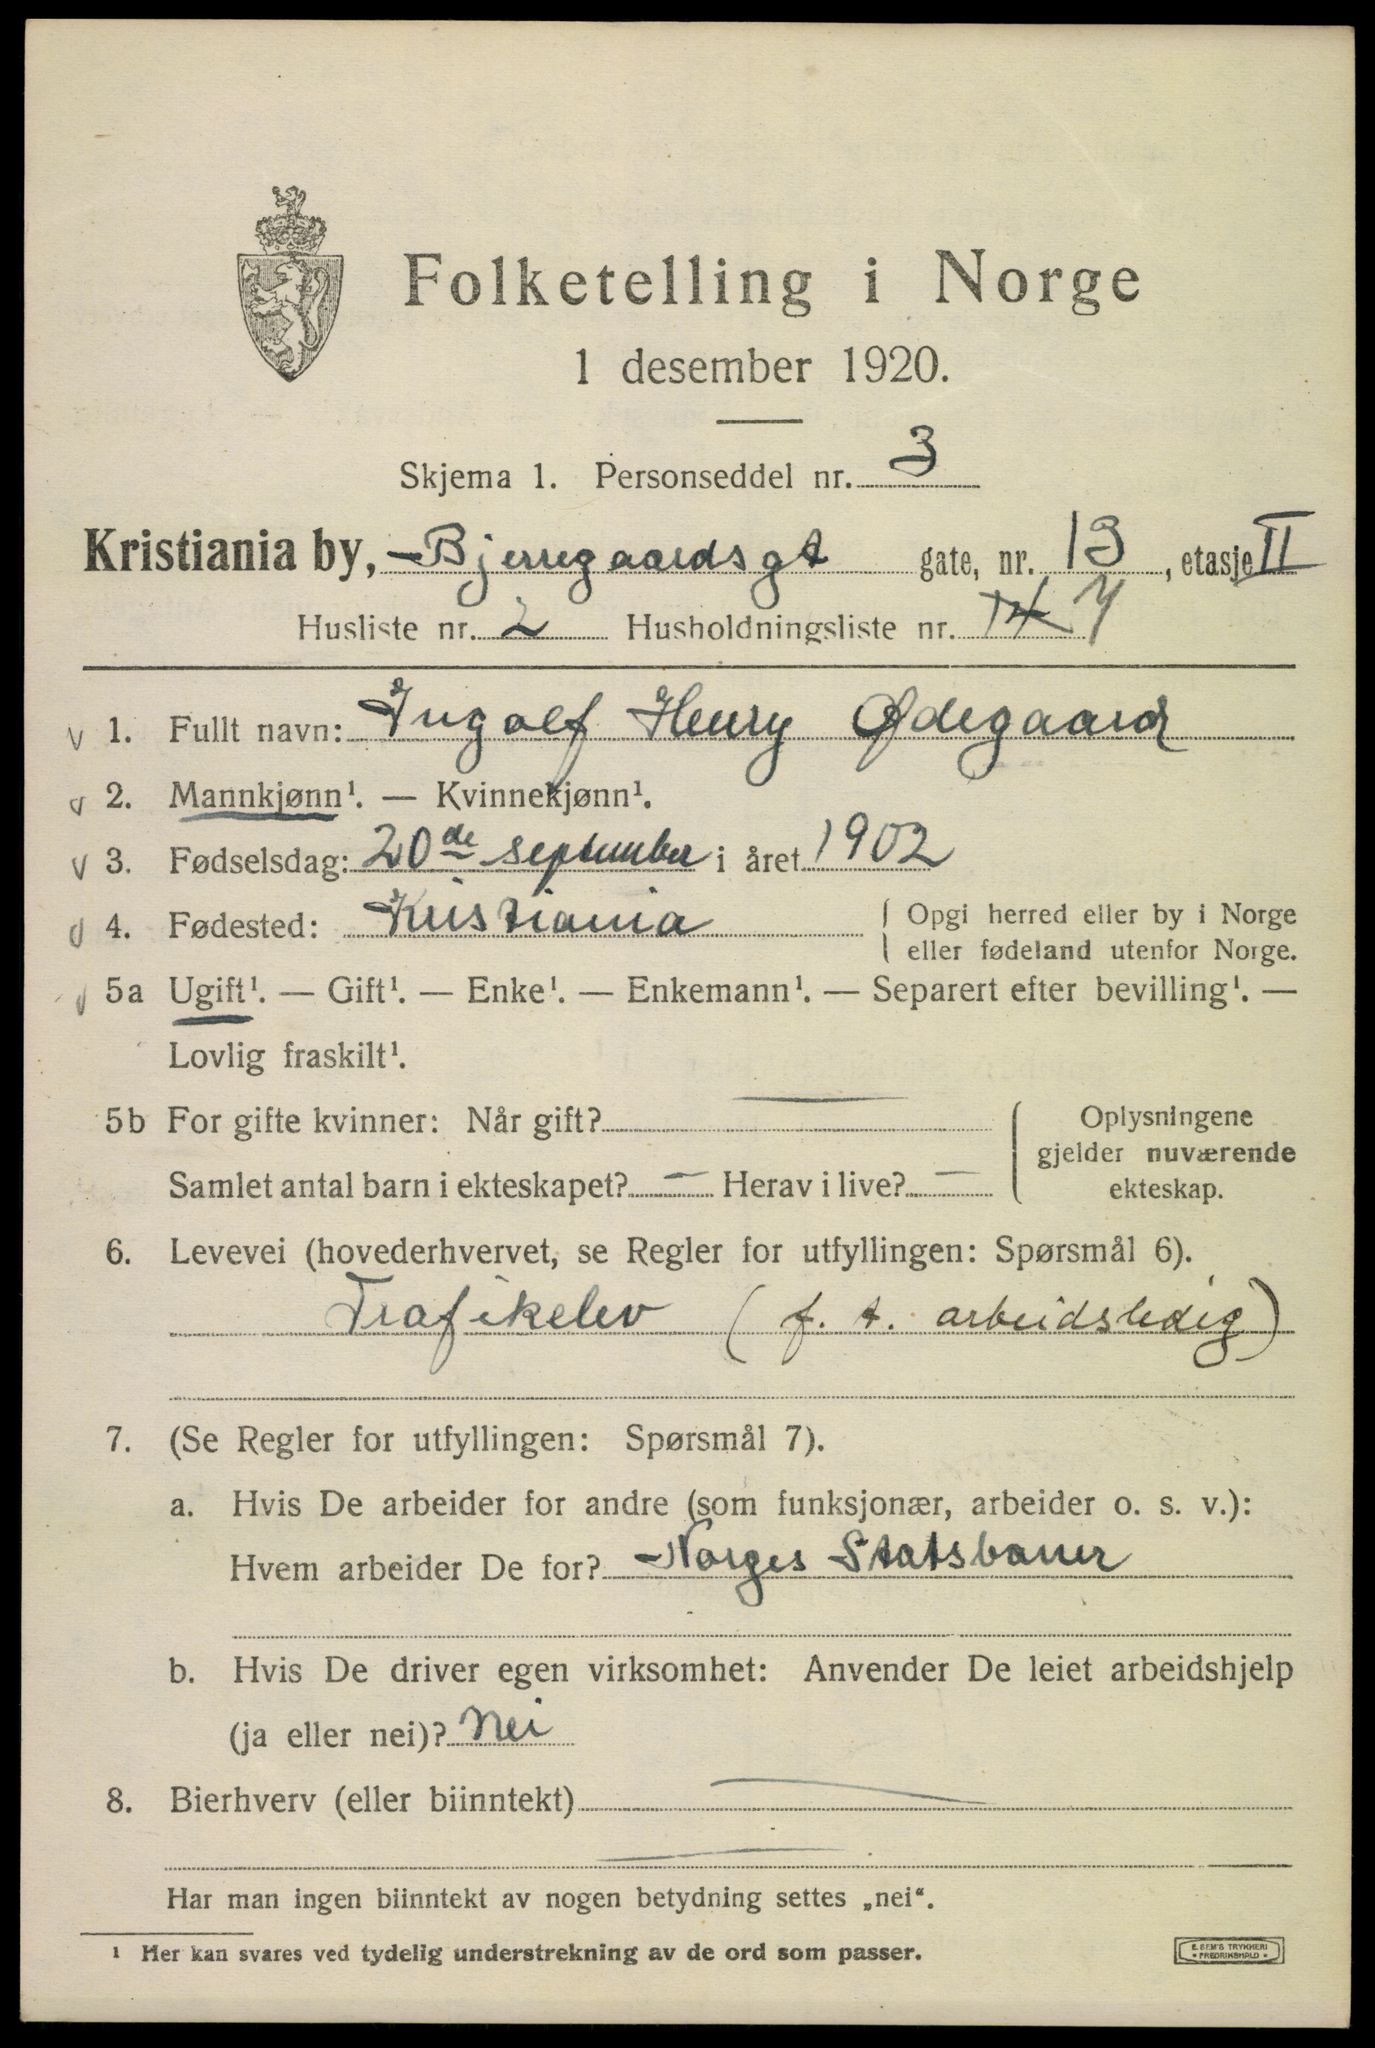 Folketelling i Norge
1 desember 1920.
Skjema 1. Personseddel nr. 3
Kristiania by, Bjerregaardsgt gate, nr. 13, etasje II
Husliste nr. 2 Husholdningsliste nr. 14 7
v 1. Fullt navn: Ingolf Henry Ødegaard
2. Mannkjønn¹. — Kvinnekjønn¹.
v 3. Fødselsdag: 20de september i året 1902
4. Fødested: Kristiania { Opgi herred eller by i Norge
eller fødeland utenfor Norge.
5a Ugift¹. — Gift¹. — Enke¹. — Enkemann¹. — Separert efter bevilling¹. —
Lovlig fraskilt¹.
5b For gifte kvinner: Når gift? —
Samlet antal barn i ekteskapet? — Herav i live? —
Oplysningene
gjelder nuværende
ekteskap.
6. Levevei (hovederhvervet, se Regler for utfyllingen: Spørsmål 6).
Trafikelev (f. t. arbeidsledig)
7. (Se Regler for utfyllingen: Spørsmål 7).
a. Hvis De arbeider for andre (som funksjonær, arbeider o. s. v.):
Hvem arbeider De for? Norges Statsbaner
b. Hvis De driver egen virksomhet: Anvender De leiet arbeidshjelp
(ja eller nei)? Nei
8. Bierhverv (eller biinntekt) —
—
Har man ingen biinntekt av nogen betydning settes „nei“.
¹ Her kan svares ved tydelig understrekning av de ord som passer.
E. SEM'S TRYKKERI
* FREDRIKSHALD *